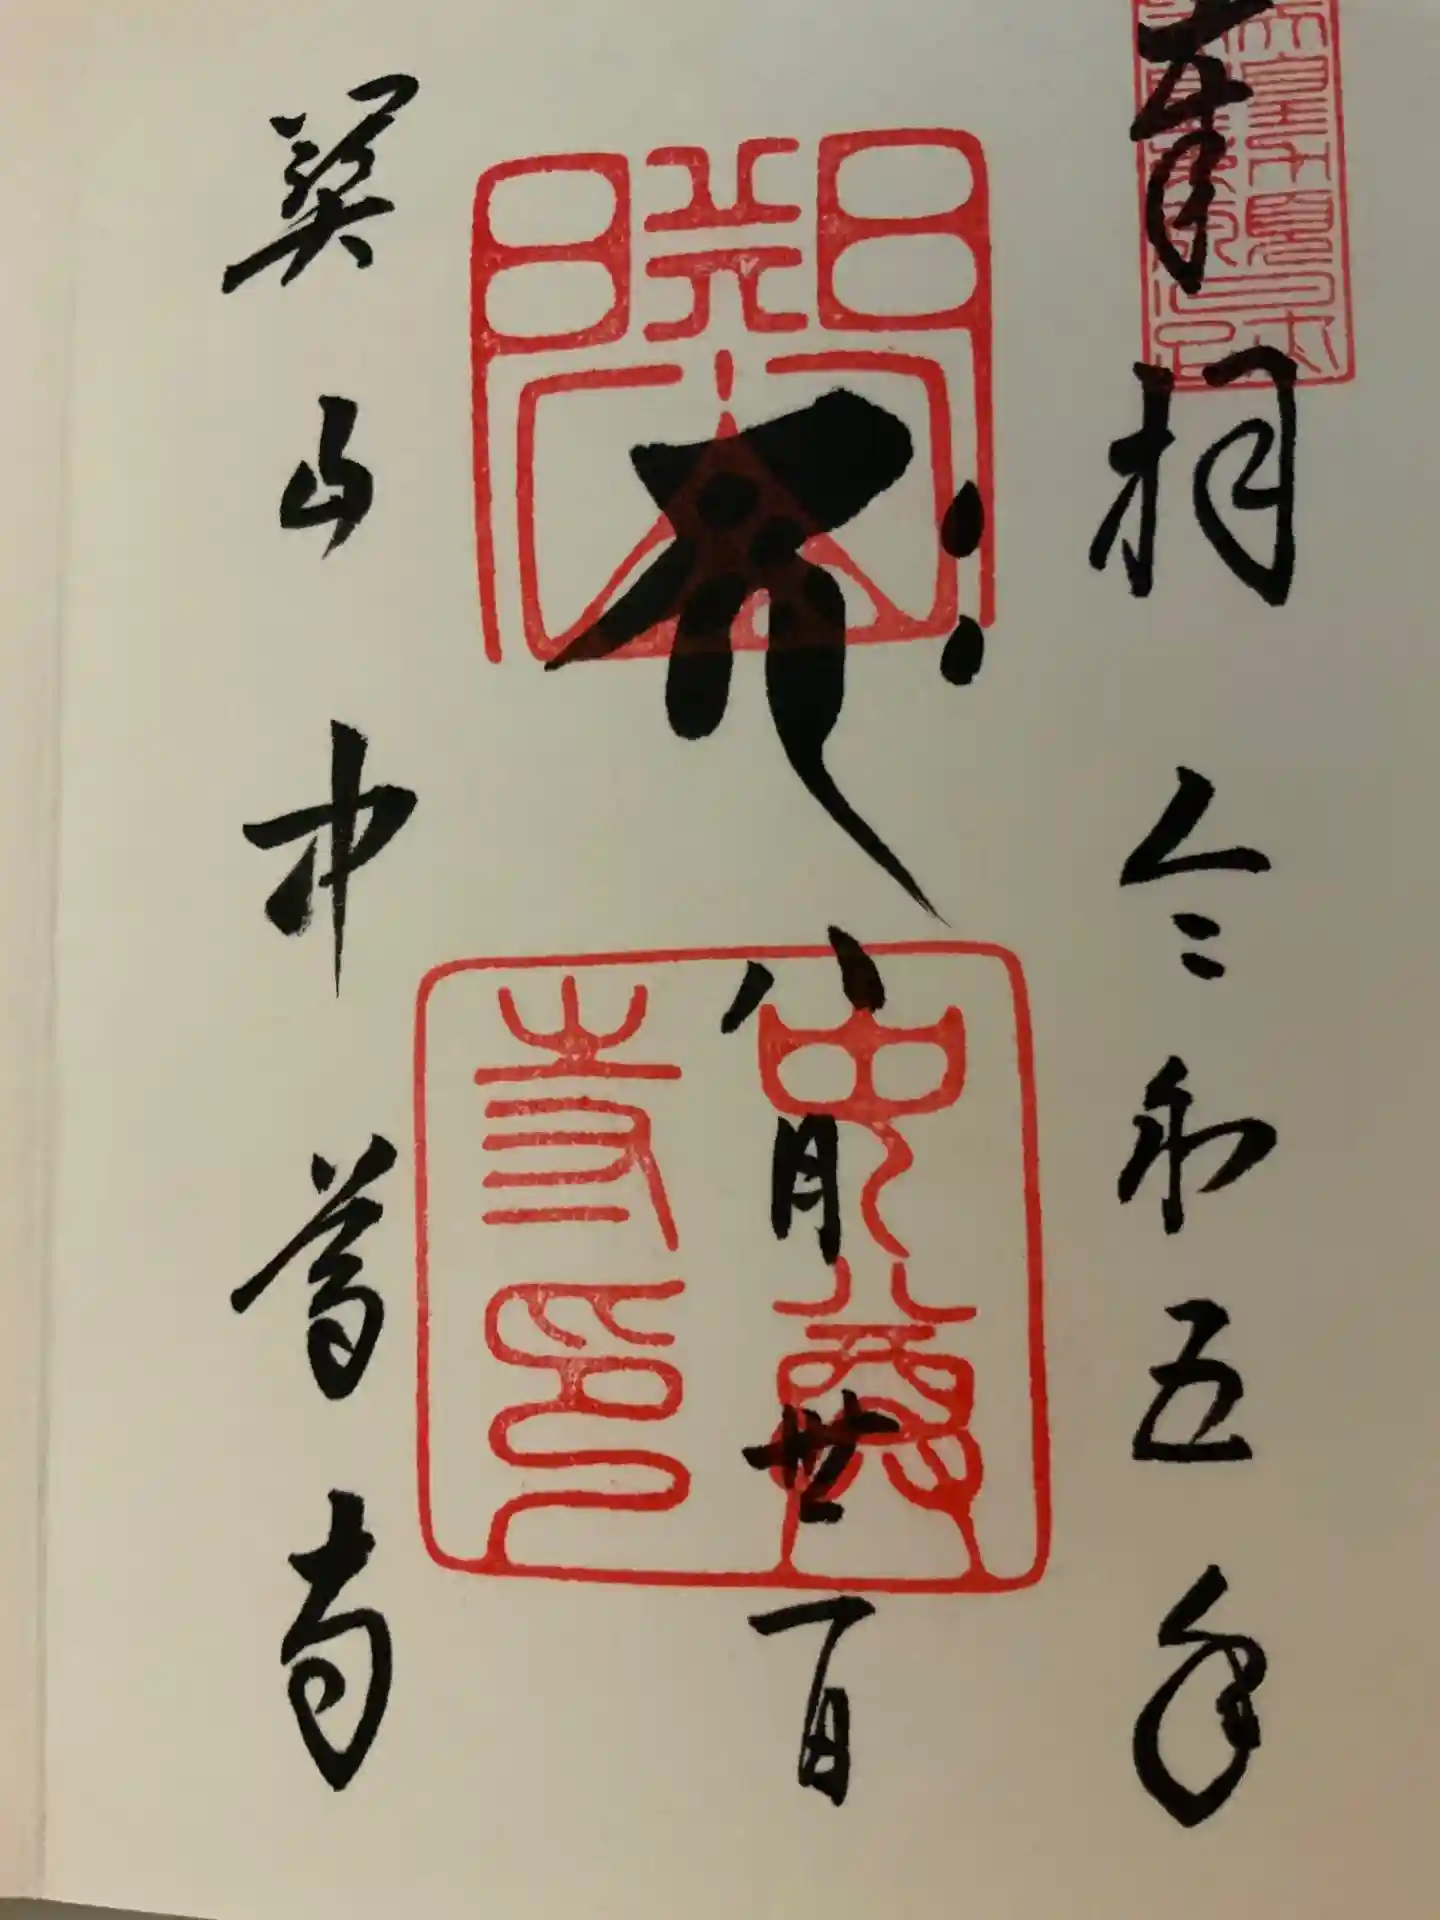 奉拝 令和五年
八月廿一日
関山中尊寺
中尊寺印